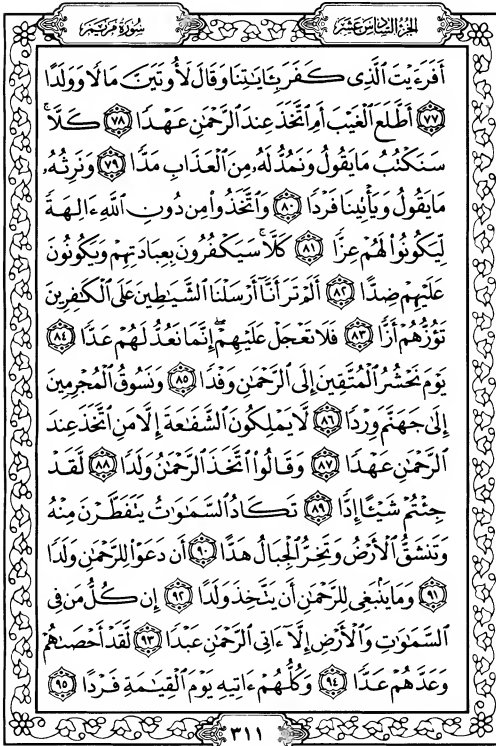 الجزء السادس عشر سورة مريم
أَفَرَءَيْتَ ٱلَّذِى كَفَرَ بِـَٔايَـٰتِنَا وَقَالَ لَأُوتَيَنَّ مَالًا وَوَلَدًا
﴿٧٧﴾ أَطَّلَعَ ٱلْغَيْبَ أَمِ ٱتَّخَذَ عِندَ ٱلرَّحْمَـٰنِ عَهْدًا ﴿٧٨﴾ كَلَّا ۚ
سَنَكْتُبُ مَا يَقُولُ وَنَمُدُّ لَهُۥ مِنَ ٱلْعَذَابِ مَدًّا ﴿٧٩﴾ وَنَرِثُهُۥ
مَا يَقُولُ وَيَأْتِينَا فَرْدًا ﴿٨٠﴾ وَٱتَّخَذُوا۟ مِن دُونِ ٱللَّهِ ءَالِهَةً
لِّيَكُونُوا۟ لَهُمْ عِزًّا ﴿٨١﴾ كَلَّا ۚ سَيَكْفُرُونَ بِعِبَادَتِهِمْ وَيَكُونُونَ
عَلَيْهِمْ ضِدًّا ﴿٨٢﴾ أَلَمْ تَرَ أَنَّآ أَرْسَلْنَا ٱلشَّيَـٰطِينَ عَلَى ٱلْكَـٰفِرِينَ
تَؤُزُّهُمْ أَزًّا ﴿٨٣﴾ فَلَا تَعْجَلْ عَلَيْهِمْ ۖ إِنَّمَا نَعُدُّ لَهُمْ عَدًّا ﴿٨٤﴾
يَوْمَ نَحْشُرُ ٱلْمُتَّقِينَ إِلَى ٱلرَّحْمَـٰنِ وَفْدًا ﴿٨٥﴾ وَنَسُوقُ ٱلْمُجْرِمِينَ
إِلَىٰ جَهَنَّمَ وِرْدًا ﴿٨٦﴾ لَّا يَمْلِكُونَ ٱلشَّفَـٰعَةَ إِلَّا مَنِ ٱتَّخَذَ عِندَ
ٱلرَّحْمَـٰنِ عَهْدًا ﴿٨٧﴾ وَقَالُوا۟ ٱتَّخَذَ ٱلرَّحْمَـٰنُ وَلَدًا ﴿٨٨﴾ لَّقَدْ
جِئْتُمْ شَيْـًٔا إِدًّا ﴿٨٩﴾ تَكَادُ ٱلسَّمَـٰوَٰتُ يَتَفَطَّرْنَ مِنْهُ
وَتَنشَقُّ ٱلْأَرْضُ وَتَخِرُّ ٱلْجِبَالُ هَدًّا ﴿٩٠﴾ أَن دَعَوْا۟ لِلرَّحْمَـٰنِ وَلَدًا
﴿٩١﴾ وَمَا يَنۢبَغِى لِلرَّحْمَـٰنِ أَن يَتَّخِذَ وَلَدًا ﴿٩٢﴾ إِن كُلُّ مَن فِى
ٱلسَّمَـٰوَٰتِ وَٱلْأَرْضِ إِلَّآ ءَاتِى ٱلرَّحْمَـٰنِ عَبْدًا ﴿٩٣﴾ لَّقَدْ أَحْصَىٰهُمْ
وَعَدَّهُمْ عَدًّا ﴿٩٤﴾ وَكُلُّهُمْ ءَاتِيهِ يَوْمَ ٱلْقِيَـٰمَةِ فَرْدًا ﴿٩٥﴾
٣١١